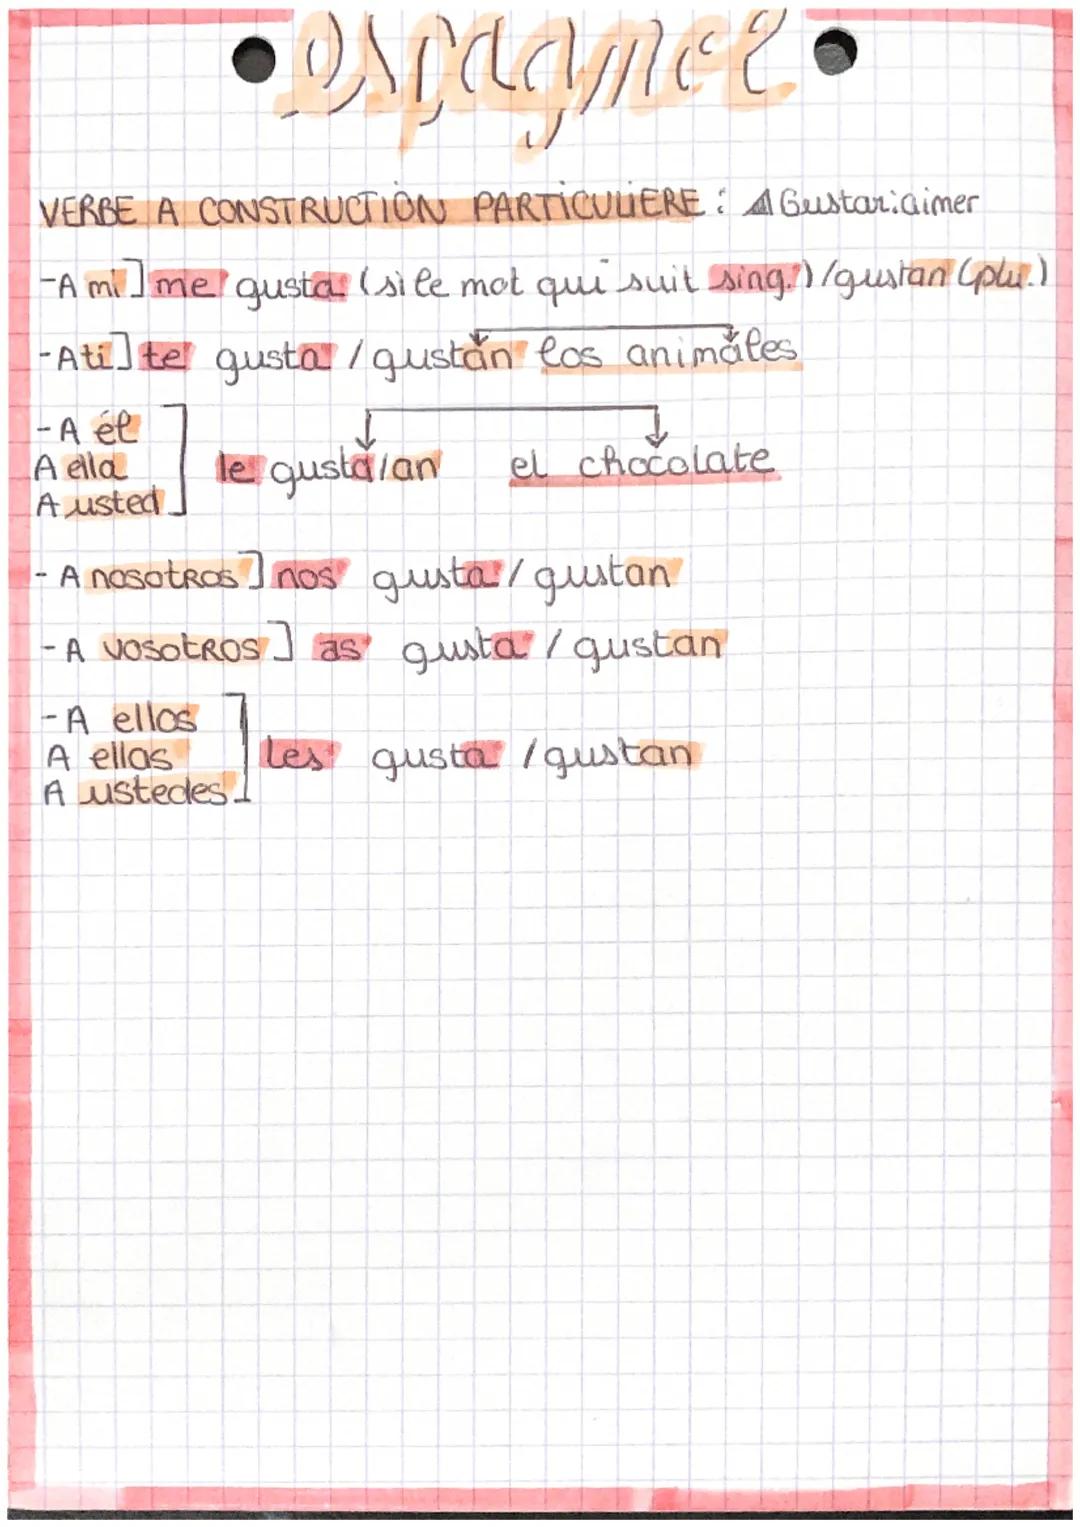 espagnol
VERBE A CONSTRUCTION PARTICULIERE : ⚠ Gustar : aimer
- A mi ] me gusta (si le mot qui suit sing.) / gustan (plu.)
- A ti ] te gusta / gustan los animales
- A él
A ella
A usted ] le gusta/an el chocolate
- A nosotros ] nos gusta / gustan
- A vosotros ] as gusta / gustan
- A ellos
A ellas
A ustedes ] les gusta / gustan